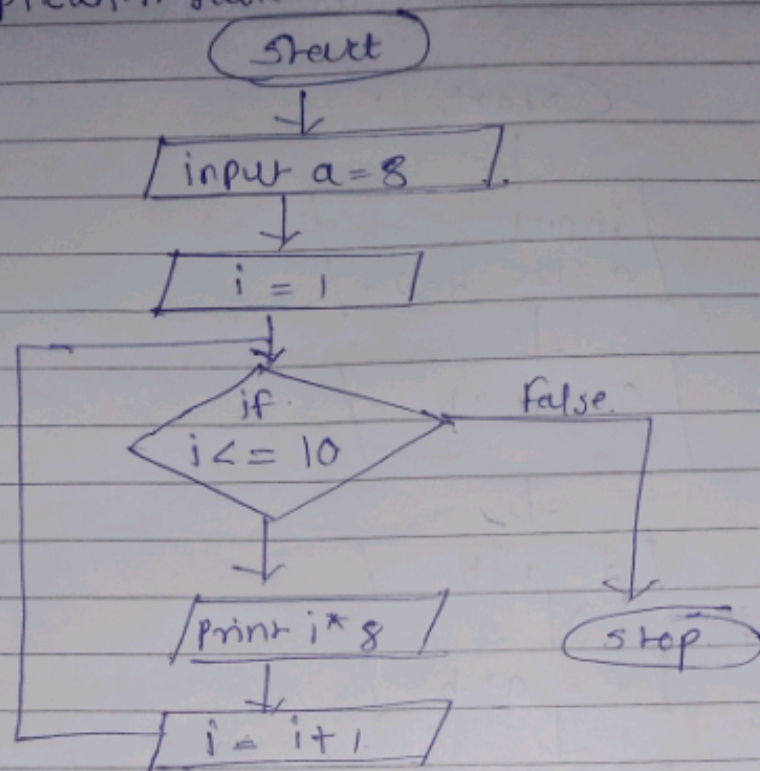 start
input a = 8
i = 1
if
i <= 10
False
print i * 8
stop
i = i + 1